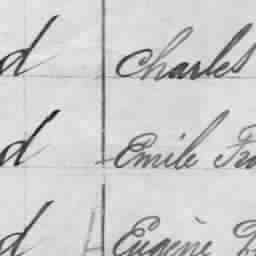 d Charles
d Emile Fra
d Eugène